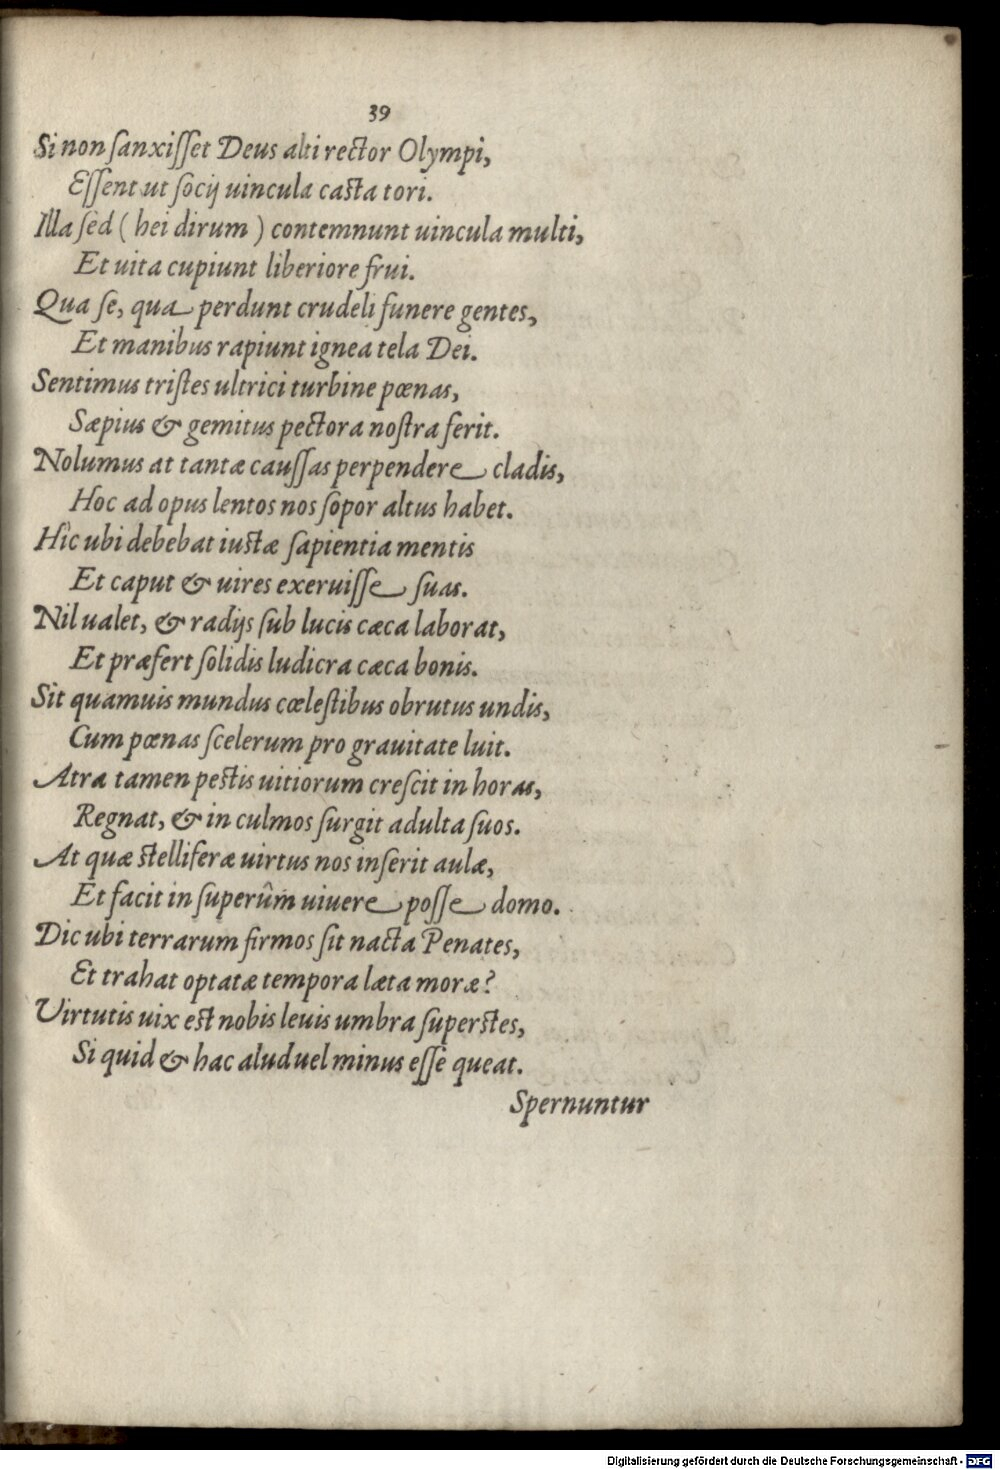 39
Si non ſanxiſſet Deus alti rector Olympi,
Eſſent ut ſocij uincula caſta tori.
Illa ſed ( hei dirum ) contemnunt uincula multi,
Et uita cupiunt liberiore frui.
Qua ſe, qua perdunt crudeli funere gentes,
Et manibus rapiunt ignea tela Dei.
Sentimus triſtes ultrici turbine pœnas,
Sæpius & gemitus pectora noſtra ferit.
Nolumus at tantæ cauſſas perpendere cladis,
Hoc ad opus lentos nos ſopor altus habet.
Hîc ubi debebat iuſtæ ſapientia mentis
Et caput & uires exeruiſſe ſuas.
Nil ualet, & radijs ſub lucis cæca laborat,
Et præfert ſolidis ludicra cæca bonis.
Sit quamuis mundus cœleſtibus obrutus undis,
Cum pœnas ſcelerum pro grauitate luit.
Atra tamen peſtis uitiorum creſcit in horas,
Regnat, & in culmos ſurgit adulta ſuos.
At quæ ſtelliferæ uirtus nos inſerit aulæ,
Et facit in ſuperûm uiuere poſſe domo.
Dic ubi terrarum firmos ſit nacta Penates,
Et trahat optatæ tempora læta moræ?
Virtutis uix eſt nobis leuis umbra ſuperſtes,
Si quid & hac alud uel minus eſſe queat.
Spernuntur
Digitalisierung gefördert durch die Deutsche Forschungsgemeinschaft - DFG